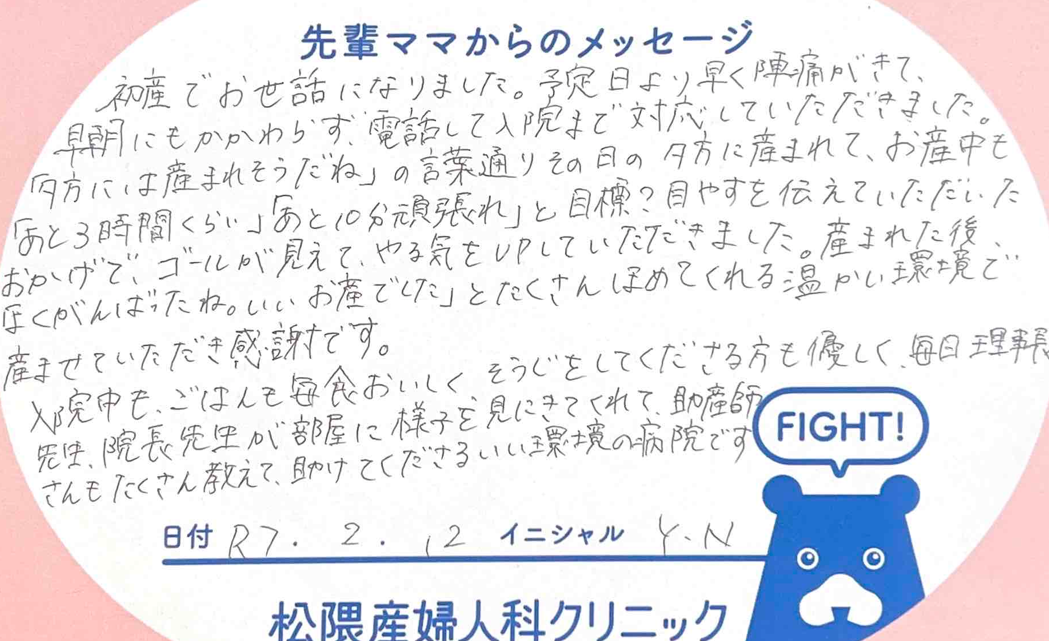 先輩ママからのメッセージ
初産でお世話になりました。予定日より早く陣痛がきて、
早朝にもかかわらず、電話して入院まで対応していただきました。
「夕方には産まれそうだね」の言葉通りその日の夕方に産まれて、お産中も
「あと3時間くらい」「あと10分頑張れ」と目標?目やすを伝えていただいた
おかげで、ゴールが見えて、やる気をUPしていただきました。産まれた後、
「よくがんばったね。いいお産でした」とたくさんほめてくれる温かい環境で
産ませていただき感謝です。
入院中も、ごはんも毎食おいしく、そうじをしてくださる方も優しく、毎日理事長
先生、院長先生が部屋に様子を見にきてくれて、助産師
さんもたくさん教えて、助けてくださるいい環境の病院です
FIGHT!
日付 R7. 2. 12 イニシャル Y.N
松隈産婦人科クリニック